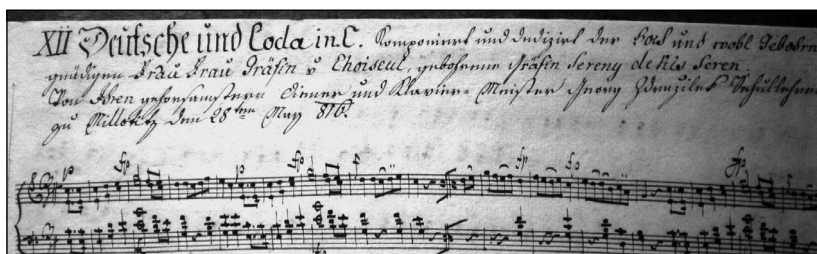 XII Deutsche und Coda in C. Componiert und dedizirt der Hoch und wohl Gebohrn
gnädigen Frau Frau Gräfin v Choiseul, gebohrene Gräfin Sereny de Kis Seren.
Von Ihren gehorsamsten Diener und Klavier-Meister Georg Zdrazilek Schullehrer
zu Millotitz den 28ten May 816.
p fp p fp p fp fp fp